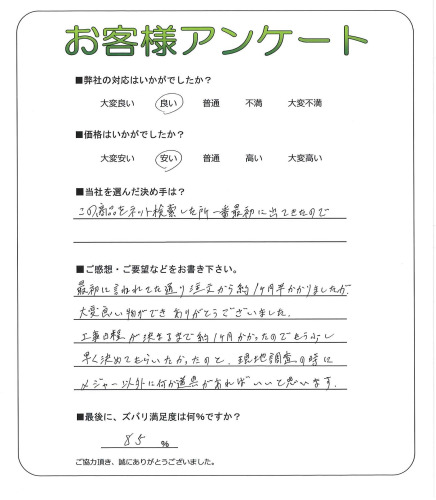 お客様アンケート
■弊社の対応はいかがでしたか？
大変良い 良い 普通 不満 大変不満
■価格はいかがでしたか？
大変安い 安い 普通 高い 大変高い
■当社を選んだ決め手は？
この商品をネット検索した所一番最初に出てきたので
■ご感想・ご要望などをお書き下さい。
最初に言われてた通り注文から約1ヶ月半かかりましたが、
大変良い物ができ ありがとうございました。
工事日程が決まるまで約1ヶ月かかったのでもう少し
早く決めてもらいたかったのと、現地調査の時に
メジャー以外に何か道具があればいいと思います。
■最後に、ズバリ満足度は何％ですか？
85 %
ご協力頂き、誠にありがとうございました。